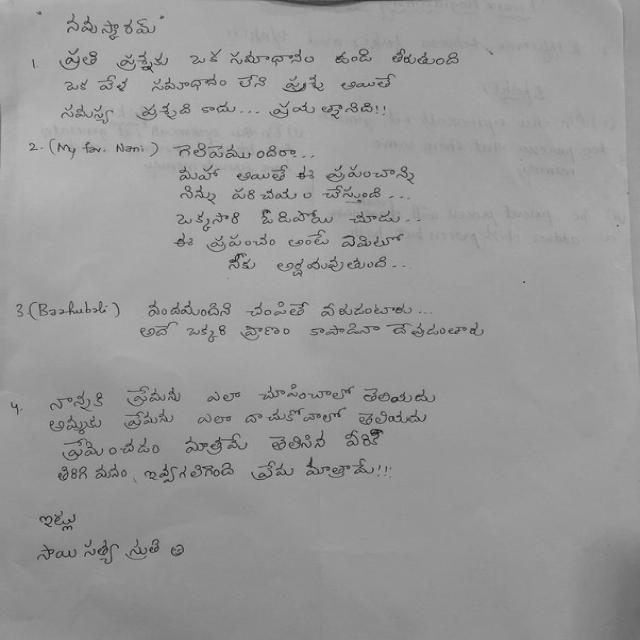 "నమస్కారమ్"
1. ప్రతి ప్రశ్నకు ఒక సమాధానం ఉండి తీరుతుంది
ఒక వేళ సమాధానం లేని ప్రశ్న అయితే
సమస్య ప్రశ్నది కాదు... ప్రయత్నానిది!!
2. (My fav. Nani) గెలిపేముందిరా...
మహా అయితే ఈ ప్రపంచాన్ని
నిన్ను పరిచయం చేస్తుంది...
ఒక్కసారి ఓడిపోయి చూడు..
ఈ ప్రపంచం అంటే ఏమిటో
నీకు అర్థమవుతుంది...
3. (Baahubali) వందమందిని చంపితే వీరుడంటారు...
అదే ఒక్కరి ప్రాణం కాపాడినా దేవుడంతారు
4. నాన్నకి ప్రేమను ఎలా చూపించాలో తెలియదు
అమ్మకు ప్రేమను ఎలా దాచుకోవాలో తెలియదు
ప్రేమించడం మాత్రమే తెలిసిన వీరికి
తిరిగి మనం ఇవ్వగలిగేంది ప్రేమ మాత్రమే!!
ఇట్లు
సాయి సత్య స్రుతి